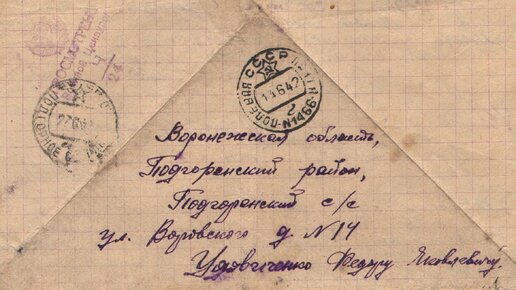 ПРОСМОТРЕНО
Военной Цензурой
24
СССР
ПОЛЕВАЯ ПОЧТА
14642
г
N1466
Воронежская область,
Подгоренский район,
Подгоренский с/с
ул. Воровского д N14
Удовиченко Федору Яковлевичу